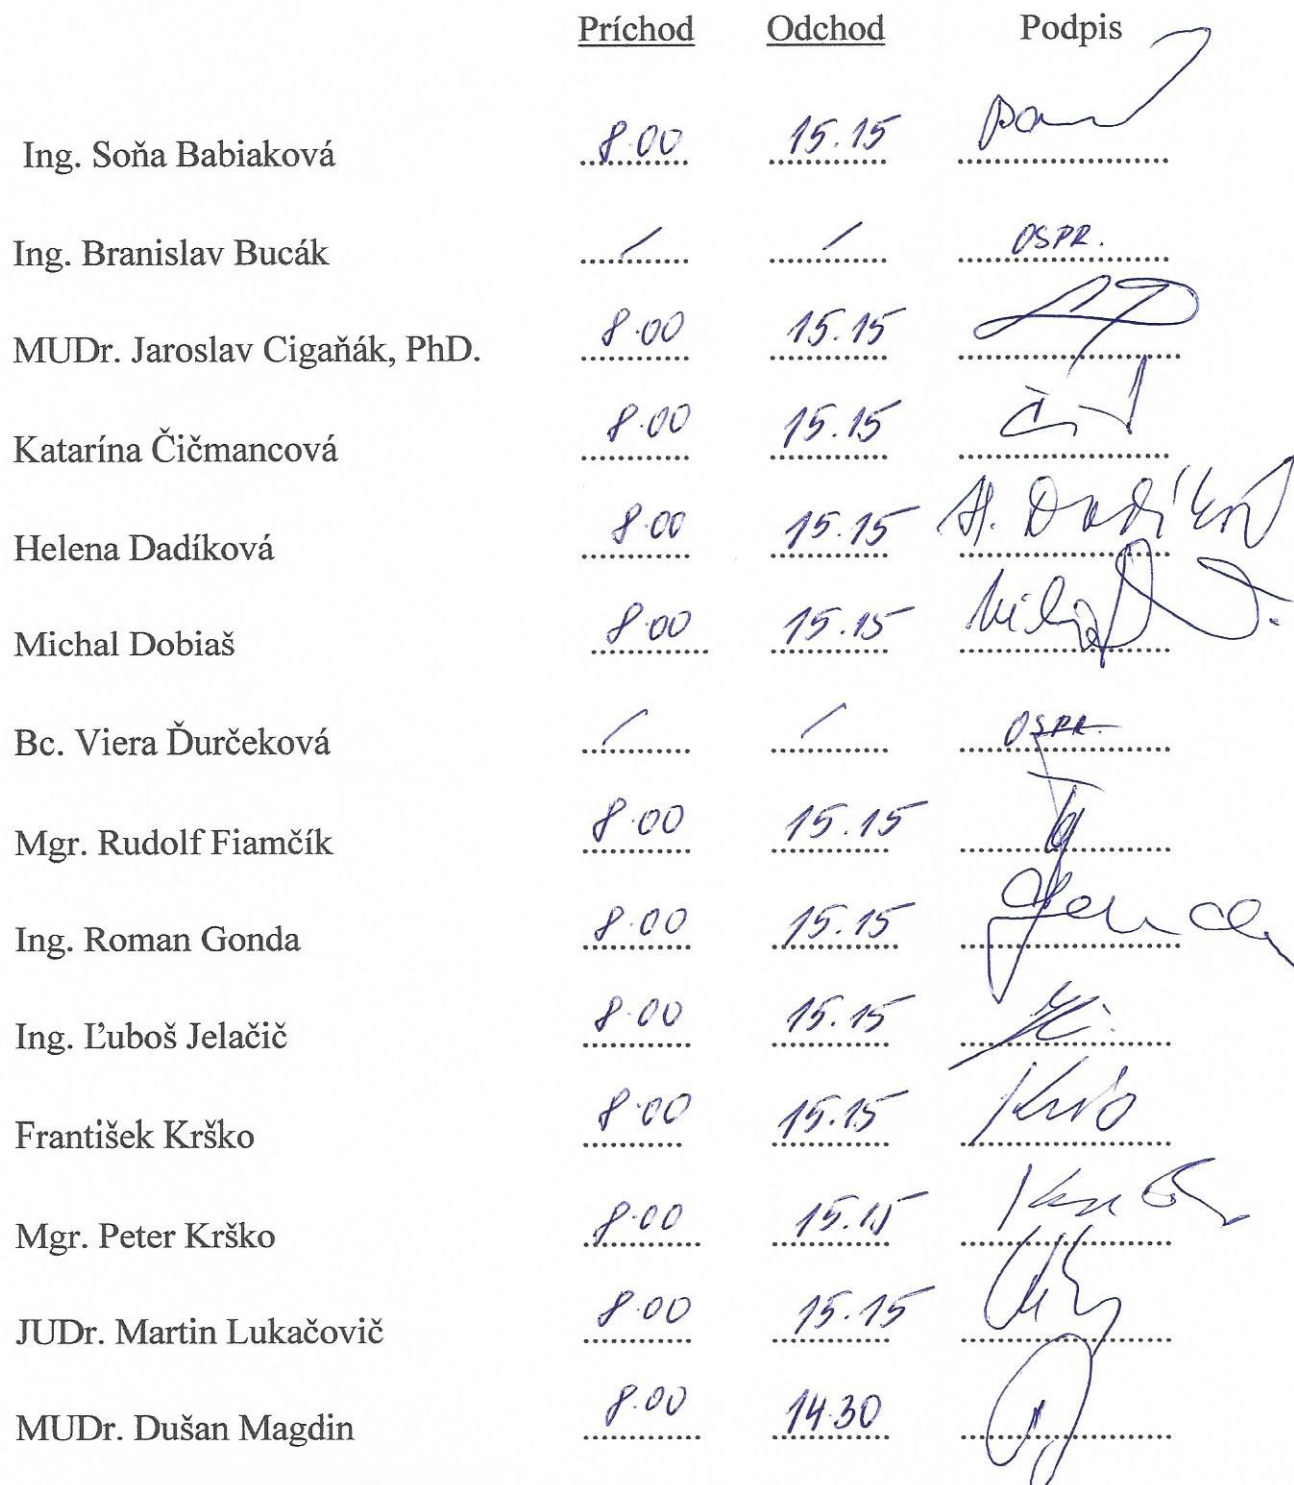 Príchod Odchod Podpis
Ing. Soňa Babiaková 8.00 15.15
Ing. Branislav Bucák / / OSPR.
MUDr. Jaroslav Cigaňák, PhD. 8.00 15.15
Katarína Čičmancová 8.00 15.15
Helena Dadíková 8.00 15.15 H. Dadíková
Michal Dobiaš 8.00 15.15
Bc. Viera Ďurčeková / / OSPR.
Mgr. Rudolf Fiamčík 8.00 15.15
Ing. Roman Gonda 8.00 15.15
Ing. Ľuboš Jelačič 8.00 15.15
František Krško 8.00 15.15
Mgr. Peter Krško 8.00 15.15
JUDr. Martin Lukačovič 8.00 15.15
MUDr. Dušan Magdin 8.00 14.30